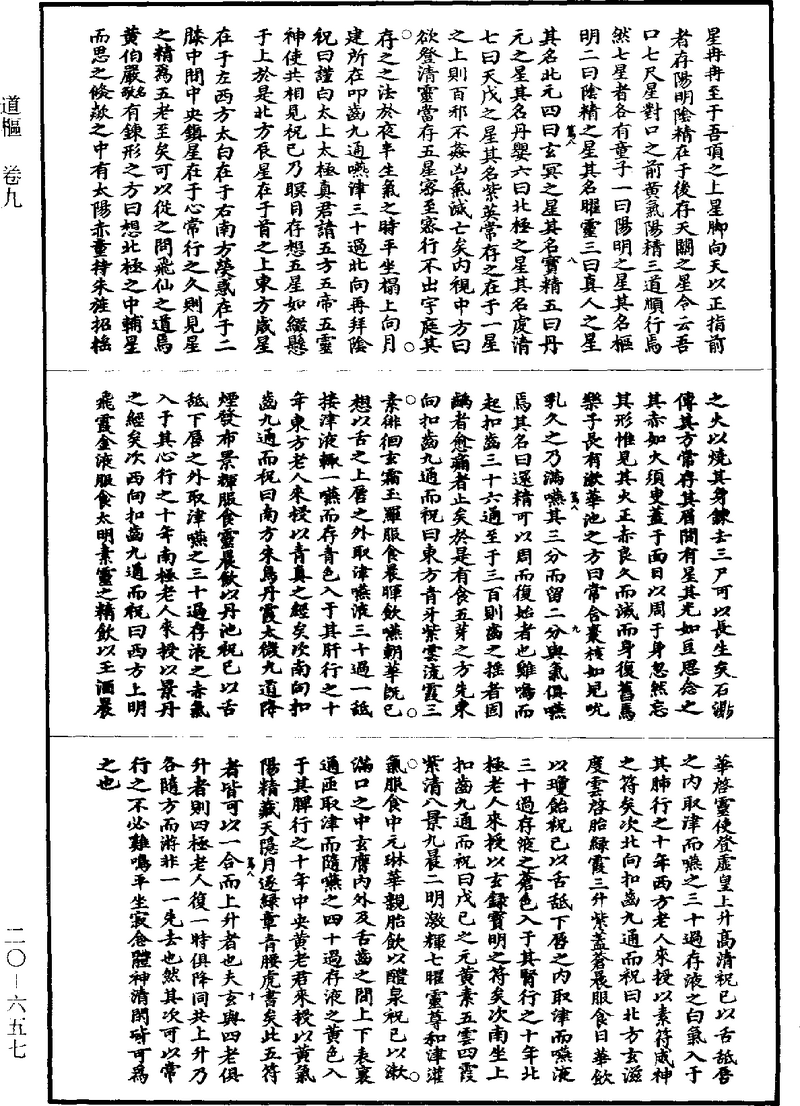 星冉冉至于吾頂之上星脚向天以正指前
者存陽明陰精在于後存天關之星令云吾
口七尺星對口之前黃氣陽精三道順行焉
然七星者各有童子一曰陽明之星其名樞
明二曰陰精之星其名曜靈三曰真人之星
其名北元四曰玄冥之星其名寶精五曰丹
元之星其名丹嬰六曰北極之星其名虔清
七曰天戊之星其名紫英常存之在于一星
之上則百邪不姦凶氣滅亡矣內視中方曰
欲登清靈當存五星密至密行不出宇庭其
存之之法於夜半生氣之時平坐榻上向月
建所在叩齒九通嚥津三十過北向再拜陰
祝曰謹白太上太極真君請五方五帝五靈
神使共相見祝已乃瞑目存想五星如綴懸
于上於是北方辰星在于首之上東方歲星
在于左西方太白在于右南方熒惑在于二
膝中間中央鎮星在于心常行之久則見星
之精爲五老至矣可以從之問飛仙之道焉
黃伯嚴有鍊形之方曰想北極之中輔星
而思之倏歘之中有太陽赤童持朱旌招搖
之火以燒其身鍊去三尸可以長生矣石
傳其方常存其眉間有星其光如豆思念之
其赤如火須臾蓋于面目以周于身忽然忘
其形惟見其火正赤良久而滅而身復舊焉
樂子長有漱華池之方曰常含棗核如兒吮
乳久之乃滿嚥其三分而留二分與氣俱嚥
焉其名曰還精可以周而復始者也雞鳴而
起扣齒三十六通至于三百則齒之搖者固
齲者愈痛者止矣於是有食五芽之方先東
向扣齒九通而祝曰東方青牙紫雲流霞三
素徘徊玄霜玉羅服食晨暉飲嚥朝華旣已
想以舌之上唇之外取津嚥液三十過一舐
接津液輒一嚥而存青色入于其肝行之十
年東方老人來授以青真之經矣次南向扣
齒九通而祝曰南方朱鳥丹霞太微九道降
煙發布景輝服食靈晨飲以丹池祝已以舌
舐下唇之外取津嚥之三十過存液之赤氣
入于其心行之十年南極老人來授以景丹
之經矣次西向扣齒九通而祝曰西方上明
飛霞金液服食太明素靈之精飲以玉酒晨
華啓靈使登虛皇上升高清祝已以舌舐唇
之內取津而嚥之三十過存液之白氣入于
其肺行之十年西方老人來授以素符威神
之符矣次北向扣齒九通而祝曰北方玄滋
度雲啓胎綠霞三升紫蓋蒼晨服食日華飲
以瓊飴祝已以舌舐下唇之內取津而嚥液
三十過存液之蒼色入于其腎行之十年北
極老人來授以玄錄寶明之符矣次南坐上
扣齒九通而祝曰戊己之元黃素五雲四霞
紫清八景九晨二明激輝七曜靈尊和津灌
氣服食中元琳華親胎飲以醴泉祝已以漱
滿口之中玄膺內外及舌齒之間上下表裏
通匝取津而隨嚥之四十過存液之黃色入
于其脾行之十年中央黃老君來授以黃氣
陽精藏天隱月逐綠章青腰虎書矣此五符
者皆可以一合而上升者也夫玄與四老俱
升者則四極老人復一時俱降同共上升乃
各隨方而游非一一先去也然其次可以常
行之不必雞鳴平坐寂食體神清閑皆可爲
之也
道樞 卷九
二〇—六五七